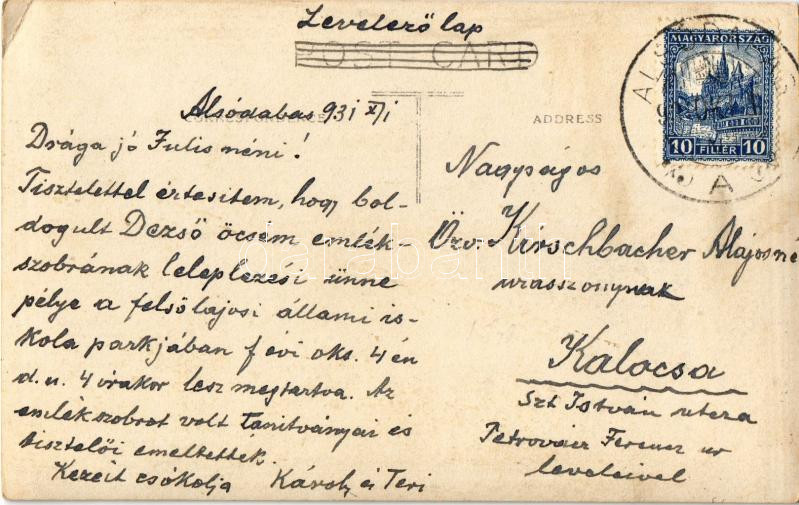 Levelező lap
POST CARD
MAGYARORSZÁG
10 FILLÉR 10
ADDRESS
Alsódabas 931 X/1
Drága jó Julis néni!
Tisztelettel értesitem, hogy bol-
dogult Dezső öcsém emlék-
szobrának leleplezési ünne
pélye a felsőlajosi állami is-
kola parkjában f évi okt. 4 én
d. u. 4 órakor lesz megtartva. Az
emlékszobrot volt tanitványai és
tisztelői emeltették.
Kezeit csókolja Károly és Teri
Nagyságos
Özv. Kirschbacher Alajosné
urasszonynak
Kalocsa
Szt István utca
Petrovácz Ferencz ur
leveleivel
darabanth